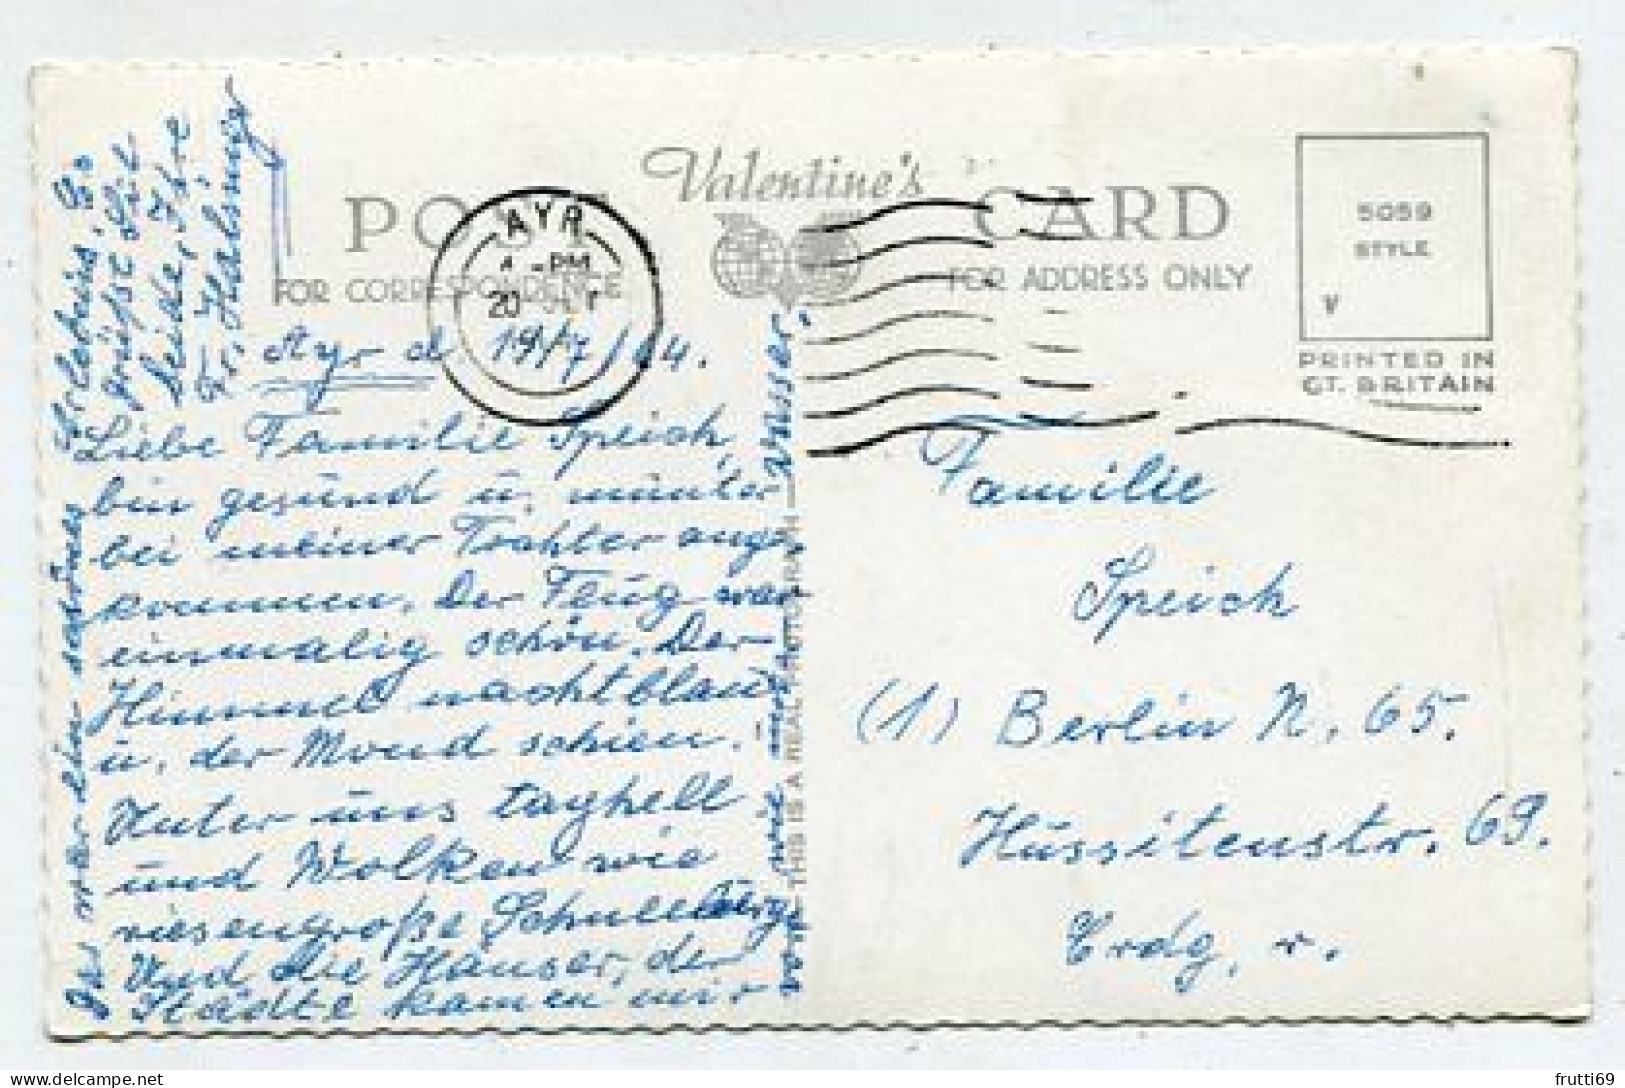 Valentine's
POST CARD
FOR CORRESPONDENCE
FOR ADDRESS ONLY
5059
STYLE
V
PRINTED IN
GT. BRITAIN
AYR
PM
20 JLY
THIS IS A REAL PHOTOGRAPH
Ayr d 19/7/64.
Liebe Familie Speich,
bin gesund u. munter
bei meiner Tochter ange-
kommen. Der Flug war
einmalig schön. Der
Himmel nachtblau
u. der Mond schien.
Unter uns taghell
und Wolken wie
riesengroße Schneeberge
Und die Häuser, der
Städte kamen mir
vor wie
Das war ein schönes
Erlebnis. So
grüßt Sie
beide, Ihre
Fr. Halsinger
Familie
Speich
(1) Berlin N. 65.
Hussitenstr. 69.
Erdg. r.
frutti69
delcampe.net